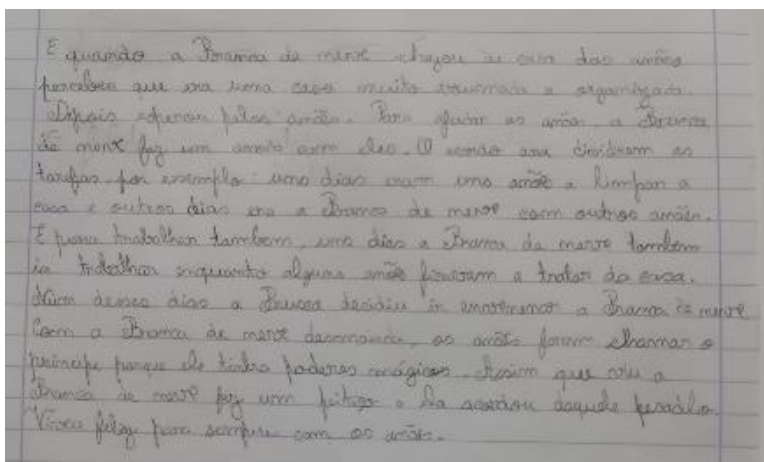 E quando a Branca de neve chegou à casa dos anões
percebeu que era uma casa muito arrumada e organizada.
Depois esperou pelos anões. Para ajudar os anões a Branca
de neve fez um acordo com eles. O acordo era dividirem as
tarefas, por exemplo: uns dias eram uns anões a limpar a
casa e outros dias era a Branca de neve com outros anões.
E para trabalhar tambem, uns dias a Branca de neve tambem
ia trabalhar enquanto alguns anões ficavam a tratar da casa.
Num desses dias a Bruxa decidiu ir envenenar a Branca de neve
Com a Branca de neve desmaiada, os anões foram chamar o
príncipe porque ele tinha poderes mágicos. Assim que viu a
Branca de neve fez um feitiço e ela acordou daquele pesadelo.
Viveu feliz para sempre com os anões.